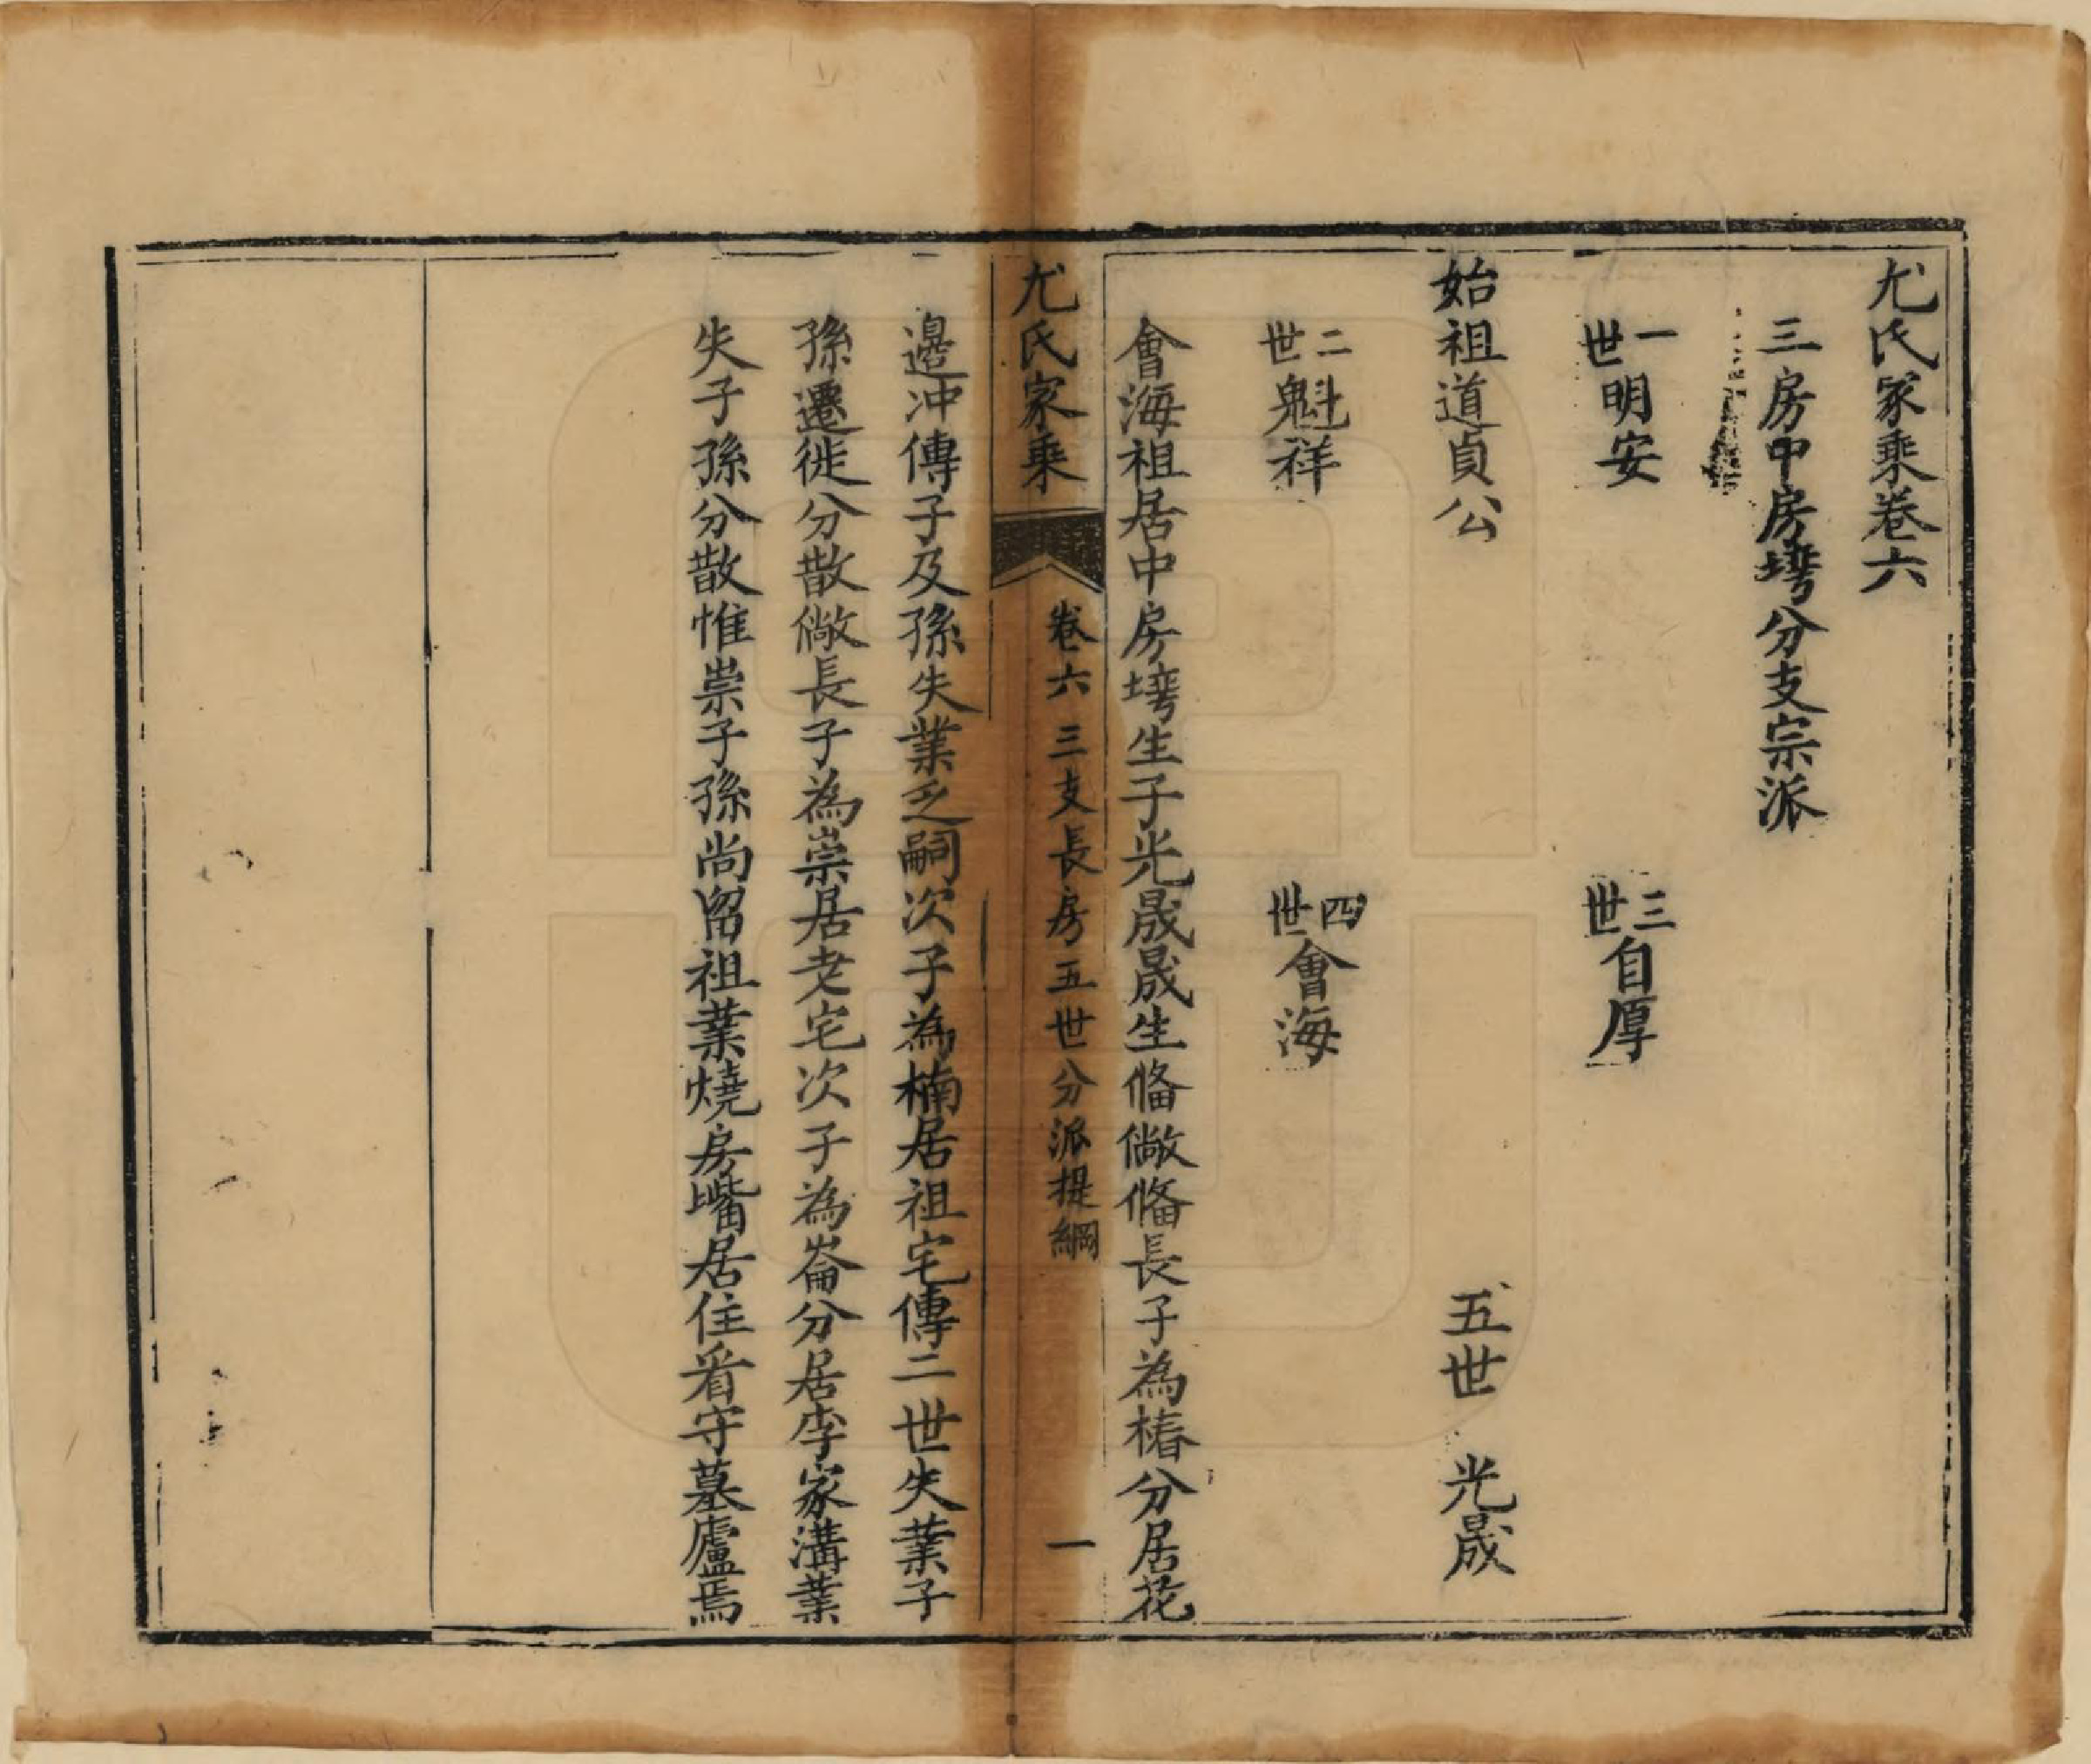 尤氏家乘卷六
三房中房塆分支宗派
一世明安
三世自厚
始祖道貞公
五世 光晟
二世魁祥
四世會海
會海祖居中房塆生子光晟晟生俻倘俻長子為椿分居花
尤氏家乘 卷六 三支長房五世分派提綱 一
邉冲傳子及孫失業乏嗣次子為楠居祖宅傳二世失業子
孫遷徙分散倘長子為崇居老宅次子為崙分居李家溝業
失子孫分散惟崇子孫尚留祖業燒房嘴居住看守墓廬焉